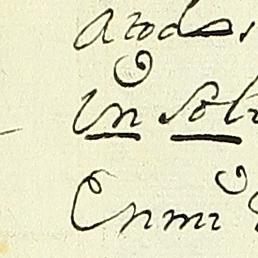 a todos
in sol
En mi